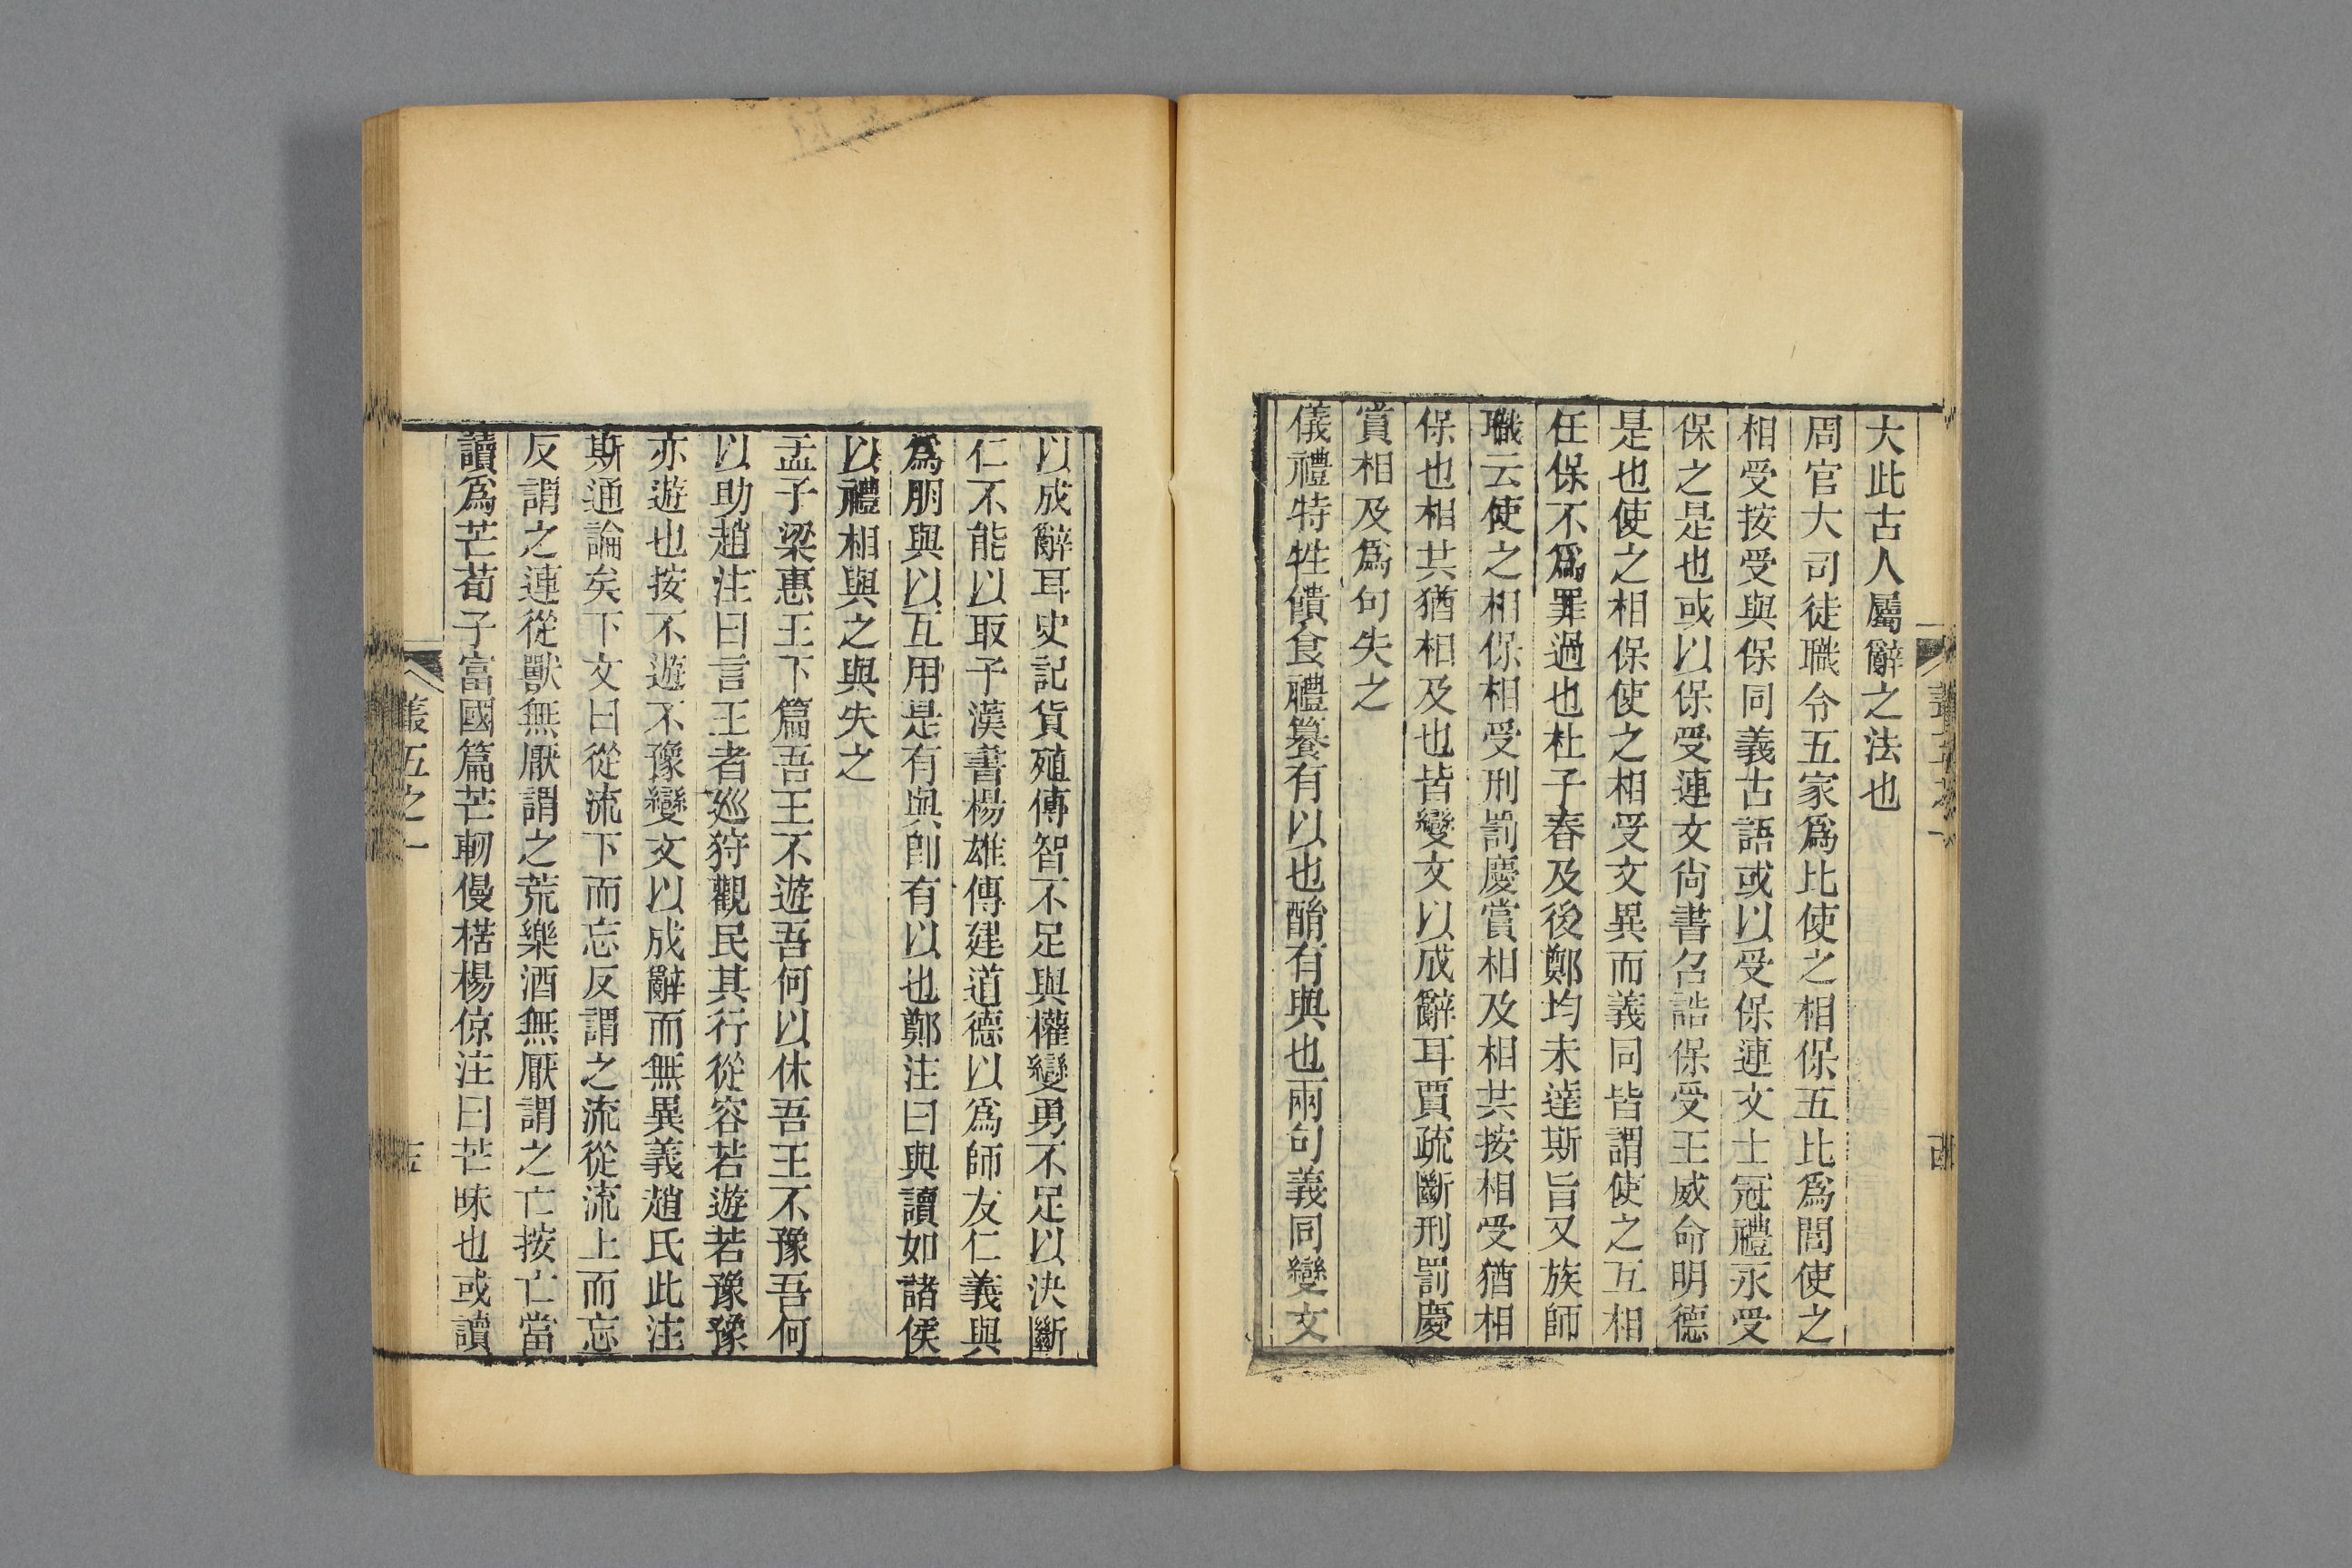 大此古人屬辭之法也
周官大司徒職令五家爲比使之相保五比爲閭使之
相受按受與保同義古語或以受保連文士冠禮永受
保之是也或以保受連文尚書召誥保受王威命明德
是也使之相保使之相受文異而義同皆謂使之互相
任保不爲罪過也杜子春及後鄭均未達斯旨又族師
職云使之相保相受刑罰慶賞相及相共按相受猶相
保也相共猶相及也皆變文以成辭耳賈疏斷刑罰慶
賞相及爲句失之
儀禮特牲饋食禮籑有以也酳有與也兩句義同變文
以成辭耳史記貨殖傳智不足與權變勇不足以決斷
仁不能以取予漢書楊雄傳建道德以爲師友仁義與
爲朋與以互用是有與卽有以也鄭注曰與讀如諸侯
以禮相與之與失之
孟子梁惠王下篇吾王不遊吾何以休吾王不豫吾何
以助趙注曰言王者廵狩觀民其行從容若遊若豫豫
亦遊也按不遊不豫變文以成辭而無異義趙氏此注
斯通論矣下文曰從流下而忘反謂之流從流上而忘
反謂之連從獸無厭謂之荒樂酒無厭謂之亡按亡當
讀爲芒荀子富國篇芒軔僈楛楊倞注曰芒昧也或讀
叢五之一